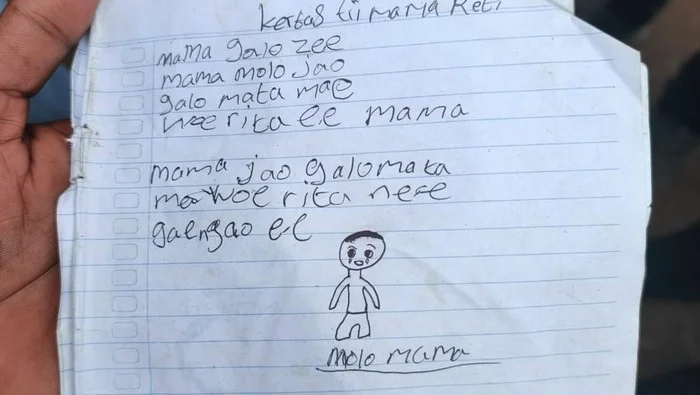 kertas tii mama Reti
mama galo zee
mama molo jao
galo mata mae
woe rita ee mama
mama jao galo mata
mae woe rita ne-e
gae ngao ee
molo mama